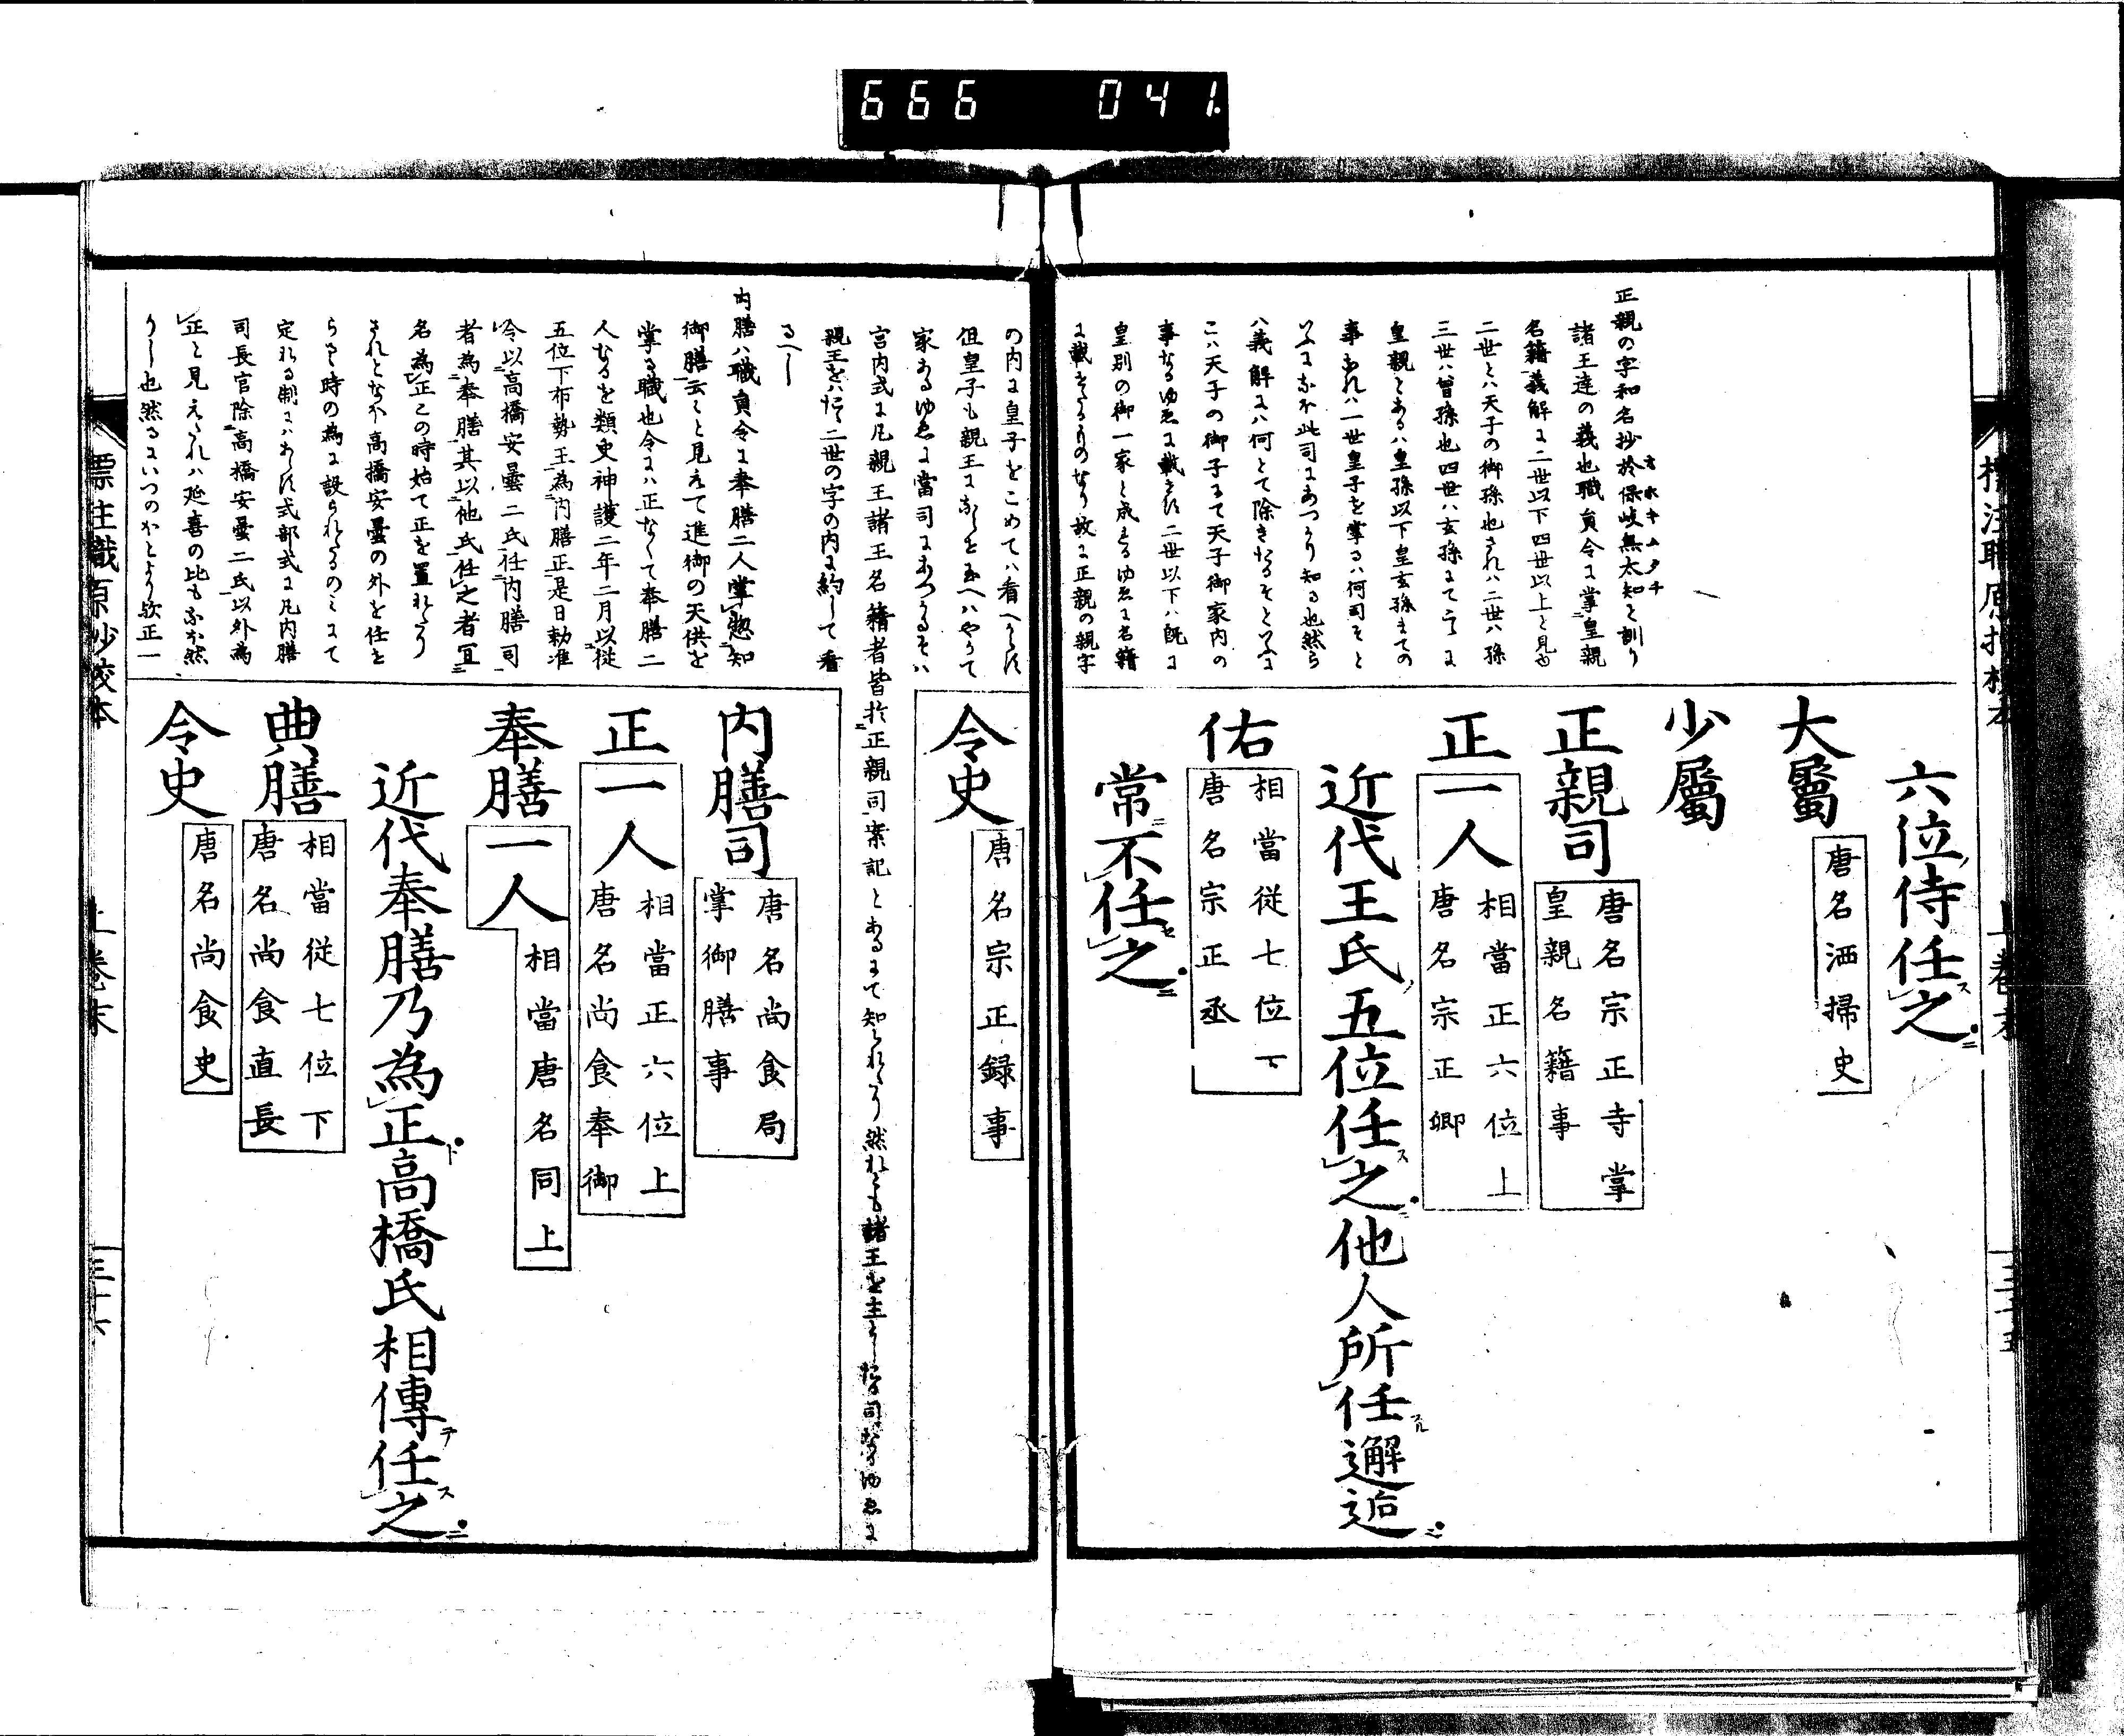 666 041
六位侍任之
大屬
唐名洒掃史
少屬
正親司
唐名宗正寺掌
皇親名籍事
正一人
相當正六位上
唐名宗正卿
近代王氏五位任之他人所任邂逅
佑
相當從七位下
唐名宗正丞
常不任之
正親の字和名抄於保岐無太知と訓り
諸王達の義也職員令に掌皇親
名籍義解に二世以下四世以上と見ゆ
二世とハ天子の御孫也されハ二世ハ孫
三世ハ曾孫也四世ハ玄孫にて
皇親とあるハ皇孫以下皇玄孫までの
事なれハ一世皇子を掌るハ何司そと
ハ義解にハ何とて除きたるそといふに
こハ天子の御子にて天子御家内の
事なるゆゑに載きれす二世以下ハ既に
皇別の御一家と成まるゆゑに名籍
に載きたるものなり故に正親の親字
の内に皇子をこめてハ看へからす
家あるゆゑに當司にあつかるそハ
宮内式に凡親王諸王名籍者皆於正親司案記とあるにて知られたり然れとも諸王を主とし
親王をハたゝ二世の字の内に約して看
るへし
令史
唐名宗正録事
内膳司
唐名尚食局
掌御膳事
正一人
相當正六位上
唐名尚食奉御
奉膳一人
相當唐名同上
近代奉膳乃為正高橋氏相傳任之
典膳
相當從七位下
唐名尚食直長
令史
唐名尚食史
内膳ハ職員令に奉膳二人掌惣知
御膳云々と見えて進御の天供を
掌る職也令にハ正なくて奉膳二
人なるを類史神護二年二月以從
五位下布勢王為内膳正是日勅准
令以高橋安曇二氏任内膳司
者為奉膳其以他氏任之者宜
名為正この時始て正を置れたり
されとなほ高橋安曇の外を任を
らるゝ時の為に設られたるのミにて
定れる制にハあらす式部式に凡内膳
司長官除高橋安曇二氏以外為
正と見えたれハ延喜の比もなほ然
りし也然るにいつのほとより歟正一
標注職原抄校本
上巻末
三十六